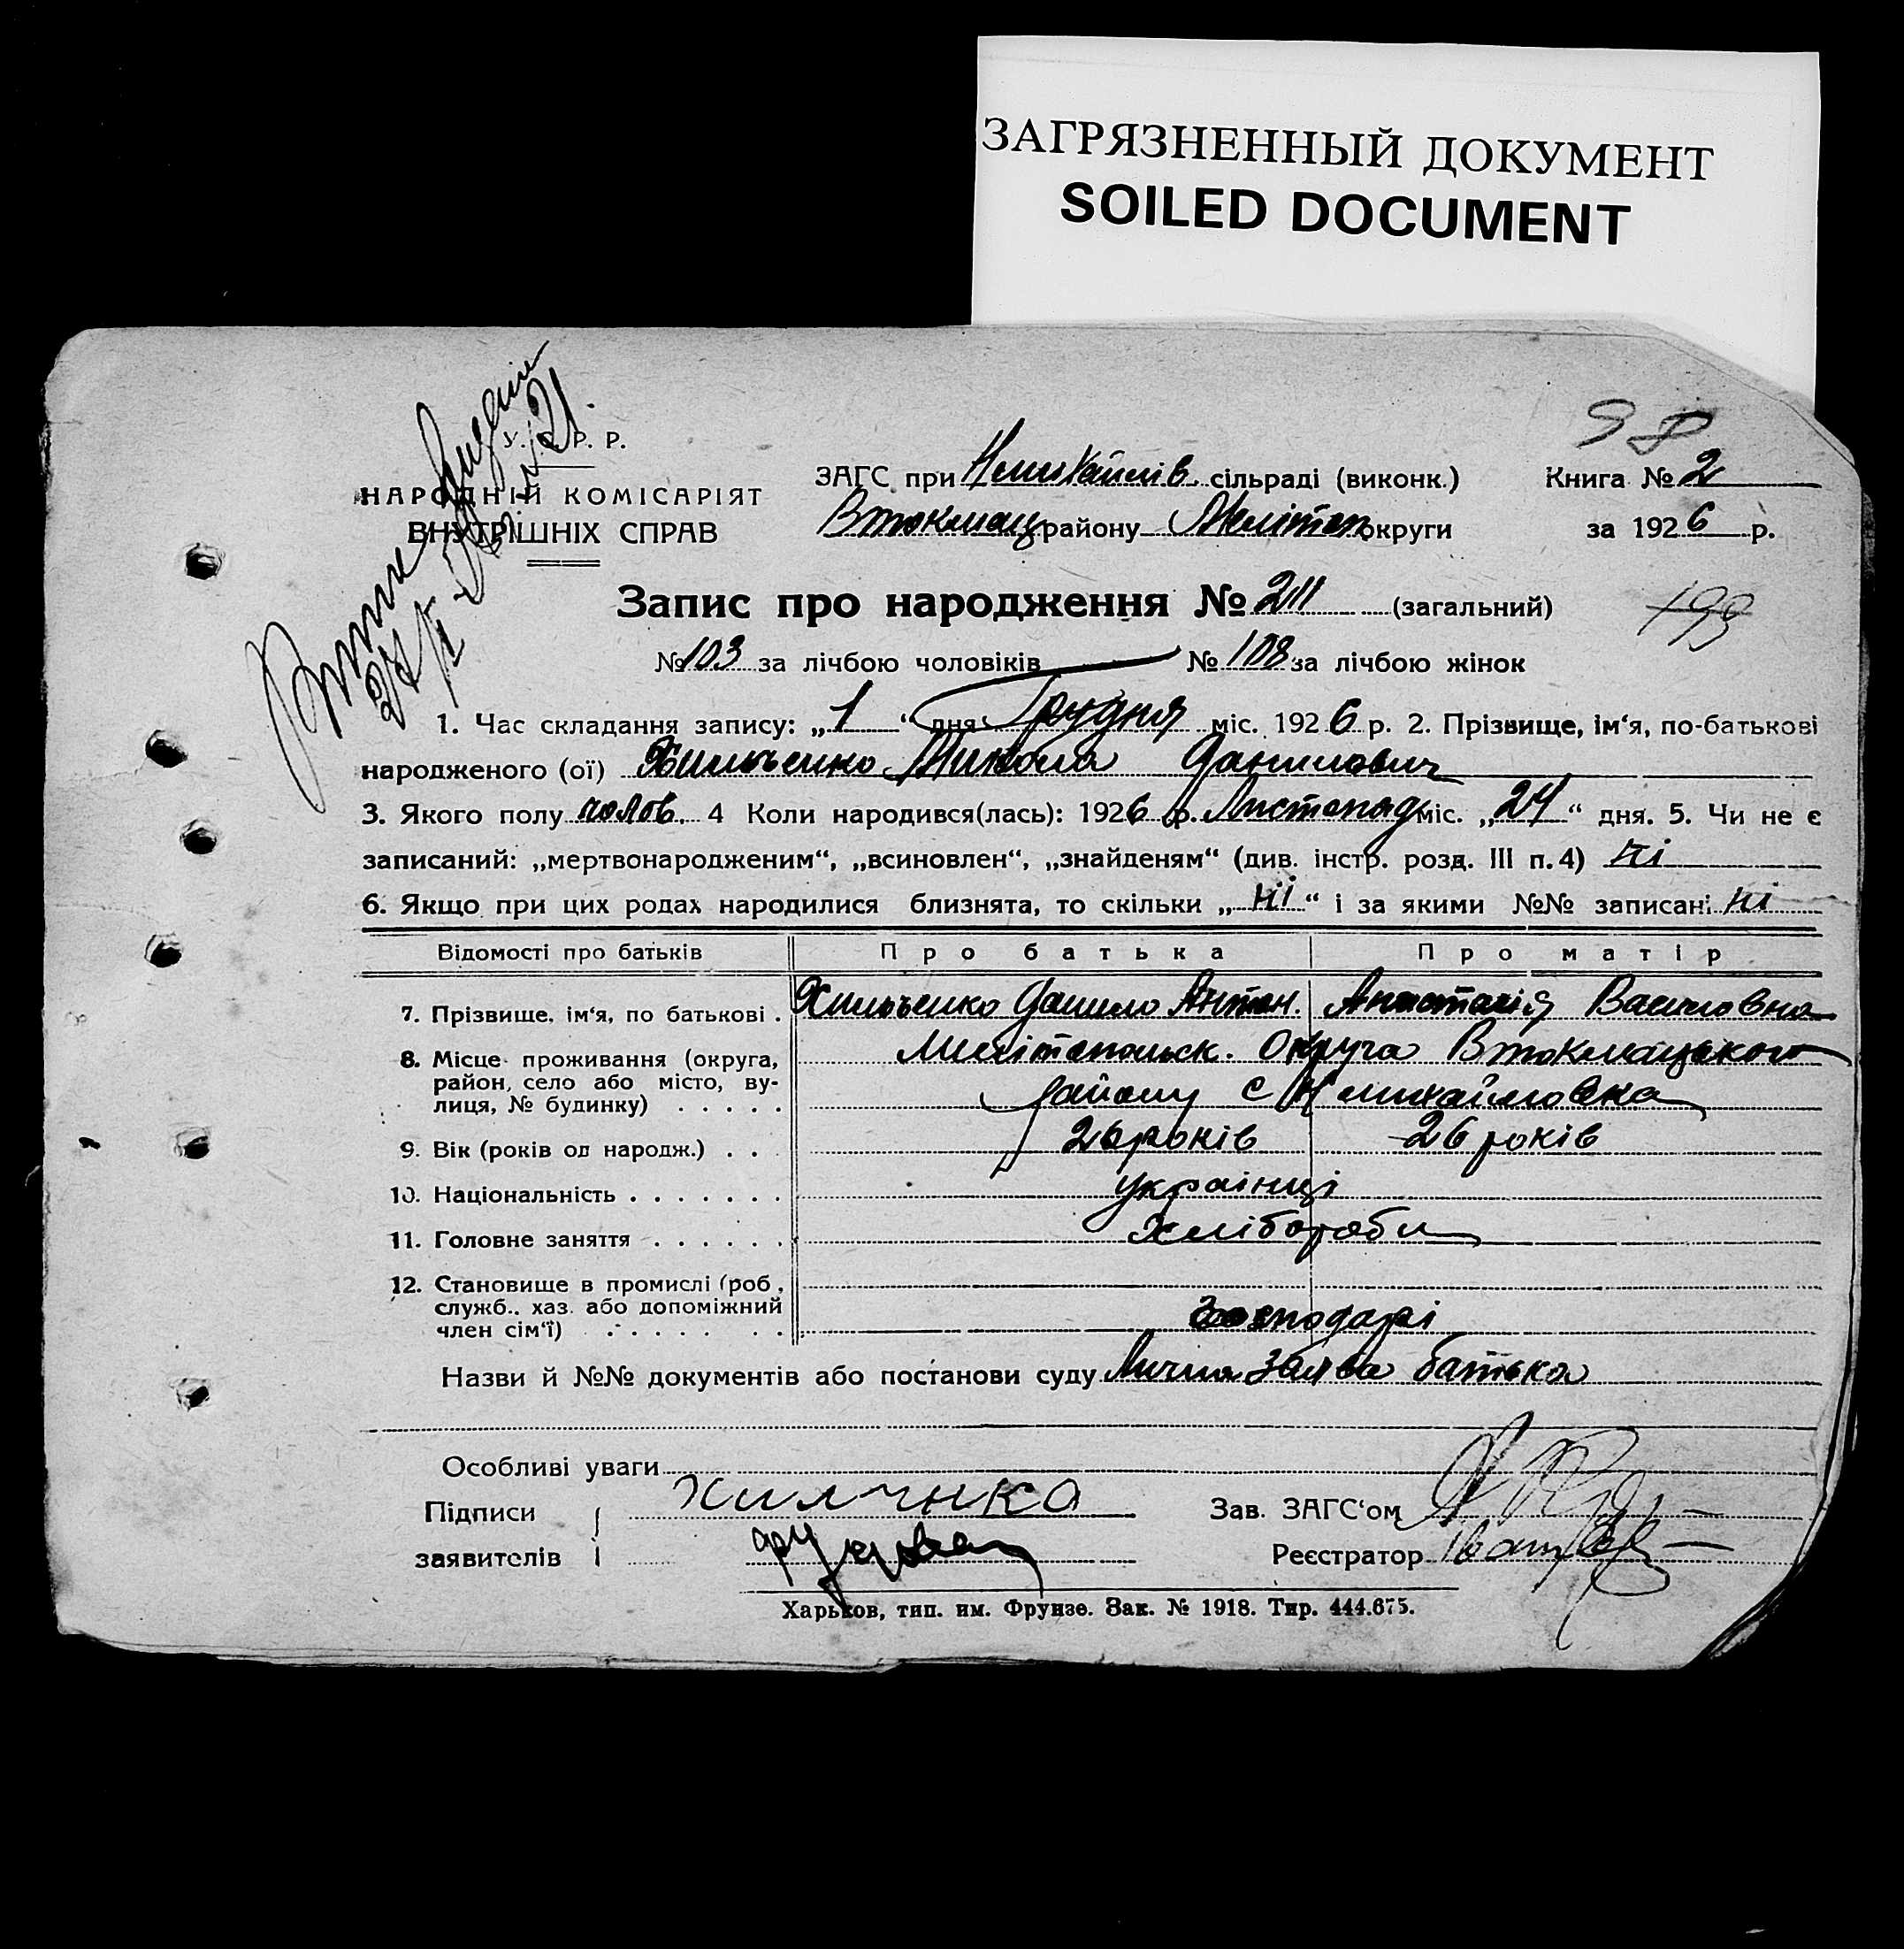 ЗАГРЯЗНЕННЫЙ ДОКУМЕНТ
SOILED DOCUMENT
38
У. С. Р. Р.
НАРОДНІЙ КОМІСАРІЯТ
ВНУТРІШНІХ СПРАВ
ЗАГС при Нмихайлів. сільраді (виконк.) Книга № 2
Втокмац району Мелітоп округи за 1926 р.
Запис про народження № 211 (загальний)
199
№ 103 за лічбою чоловіків № 108 за лічбою жінок
1. Час складання запису: „1“ дня Грудня міс. 1926 р. 2. Прізвище, ім‘я, по-батькові
народженого (ої) Хильченко Микола Данилович
3. Якого полу чолов. 4 Коли народився(лась): 1926 р. Листопад міс. „24“ дня. 5. Чи не є
записаний: „мертвонародженим“, „всиновлен“, „знайденям“ (див. інстр. розд. III п. 4) ні
6. Якщо при цих родах народилися близнята, то скільки „ні“ і за якими №№ записані ні
Відомості про батьків Про батька Про матір
7. Прізвище, ім‘я, по батькові . Хильченко Данило Антон. Анастасія Василовна
8. Місце проживання (округа, район, село або місто, ву-
лиця, № будинку) . . . . . Мелітопольск. Округа Втокмацького
району с Нмихайловка
9. Вік (років од народж.) . . . 26 років 26 років
10. Національність . . . . . . . українці
11. Головне заняття . . . . . . хлібороби
12. Становище в промислі (роб.,
служб., хаз. або допоміжний
член сім‘ї) . . . . . . . господарі
Назви й №№ документів або постанови суду Лична заява батька
Особливі уваги
Підписи хилчнка Зав. ЗАГС‘ом
заявителів Реєстратор
Харьков, тип. им. Фрунзе. Зак. № 1918. Тир. 444.675.